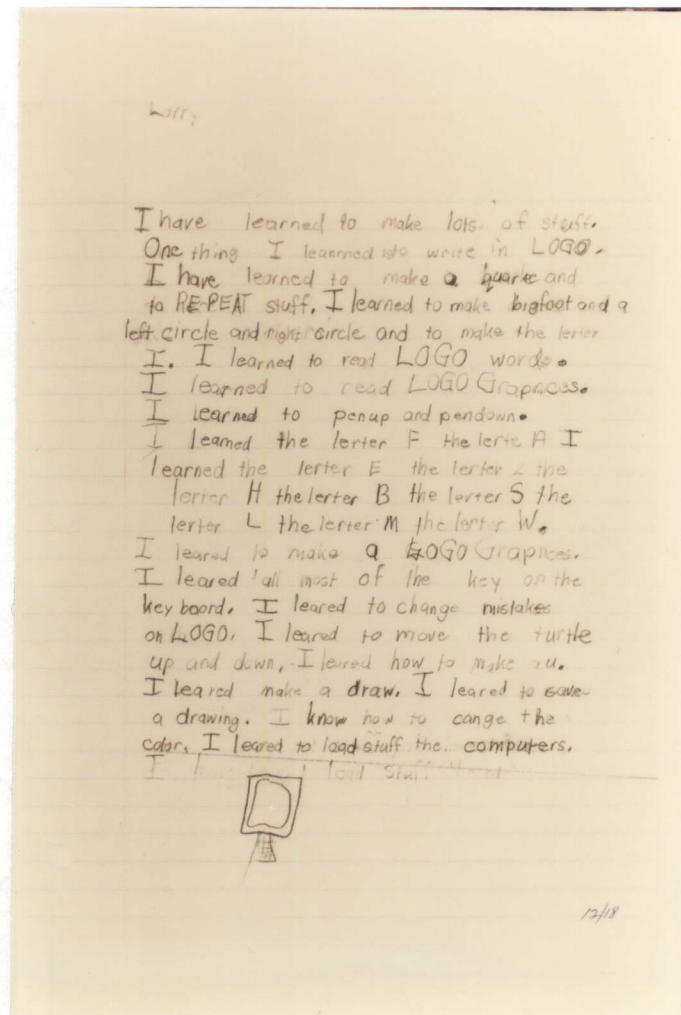 I have learned to make lots of stuff.
One thing I leanrned is to write in LOGO.
I have learned to make a quarte and
to RE-PEAT stuff. I learned to make bigfoot and a
left circle and right circle and to make the lerter
I. I learned to read LOGO words.
I learned to read LOGO Graphices.
I learned to penup and pendown.
I learned the lerter F the lerte A I
learned the lerter E the lerter the
lerter H the lerter B the lerter S the
lerter L the lerter M the lerter W.
I leared to make a LOGO Graphices.
I leared all most of the key on the
key board. I leared to change mistakes
on LOGO. I leared to move the turtle
up and down. I leared how to make a u.
I leared make a draw. I leared to save
a drawing. I know how to cange the
color. I leared to load stuff the computers.
I load stuff
12/18